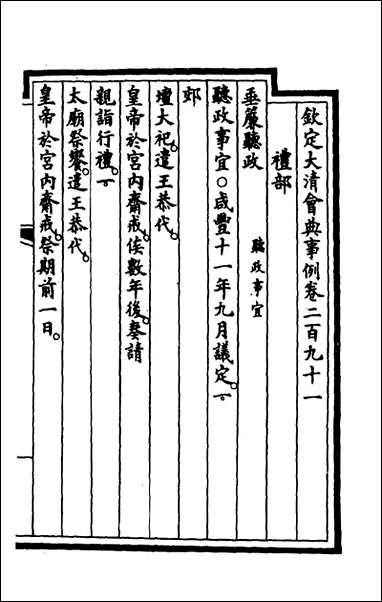 欽定大清會典事例卷二百九十一
禮部
垂簾聽政 聽政事宜
聽政事宜○咸豐十一年九月議定。一。
郊
壇大祀。遣王恭代。
皇帝於宮內齋戒。俟數年後。奏請
親詣行禮。一。
太廟祭饗。遣王恭代。
皇帝於宮內齋戒。祭期前一日。